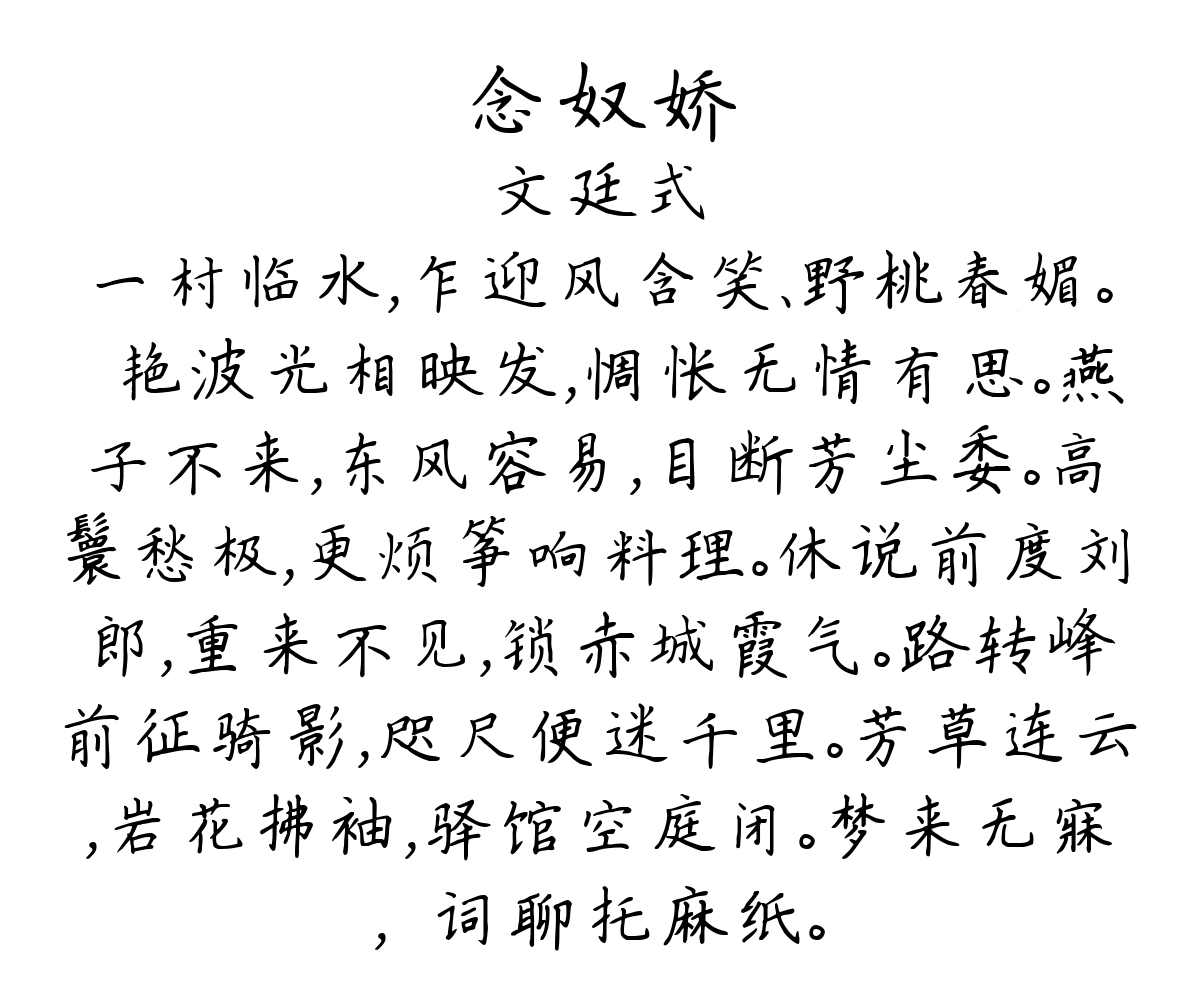 念奴娇
文廷式
一村临水,乍迎风含笑、野桃春媚。
艳波光相映发,惆怅无情有思。燕
子不来,东风容易,目断芳尘委。高
鬟愁极,更烦筝响料理。休说前度刘
郎,重来不见,锁赤城霞气。路转峰
前征骑影,咫尺便迷千里。芳草连云
,岩花拂袖,驿馆空庭闭。梦来无寐
,词聊托麻纸。